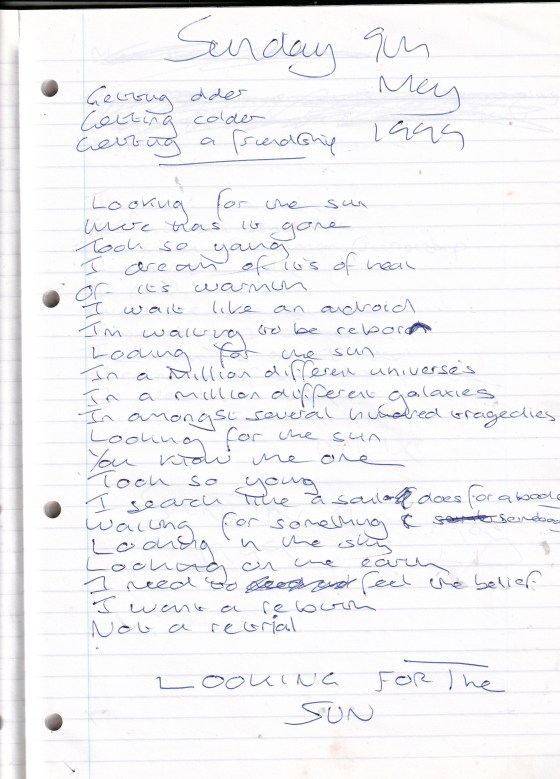 Sunday 9th
May
1999
Getting older
Getting colder
Getting a friendship
Looking for the sun
Where has it gone
Took so young
I dream of it's of heat
Of it's warmth
I wait like an android
I'm waiting to be reborn
Looking for the sun
In a million different universes
In a million different galaxies
In amongst several hundred tragedies
Looking for the sun
You know the one
Took so young
I search like a soul does for a body
Waiting for something &
Looking in the sky
Looking on the earth
I need to feel the belief
I want a rebirth
Not a retrial
LOOKING FOR The
SUN